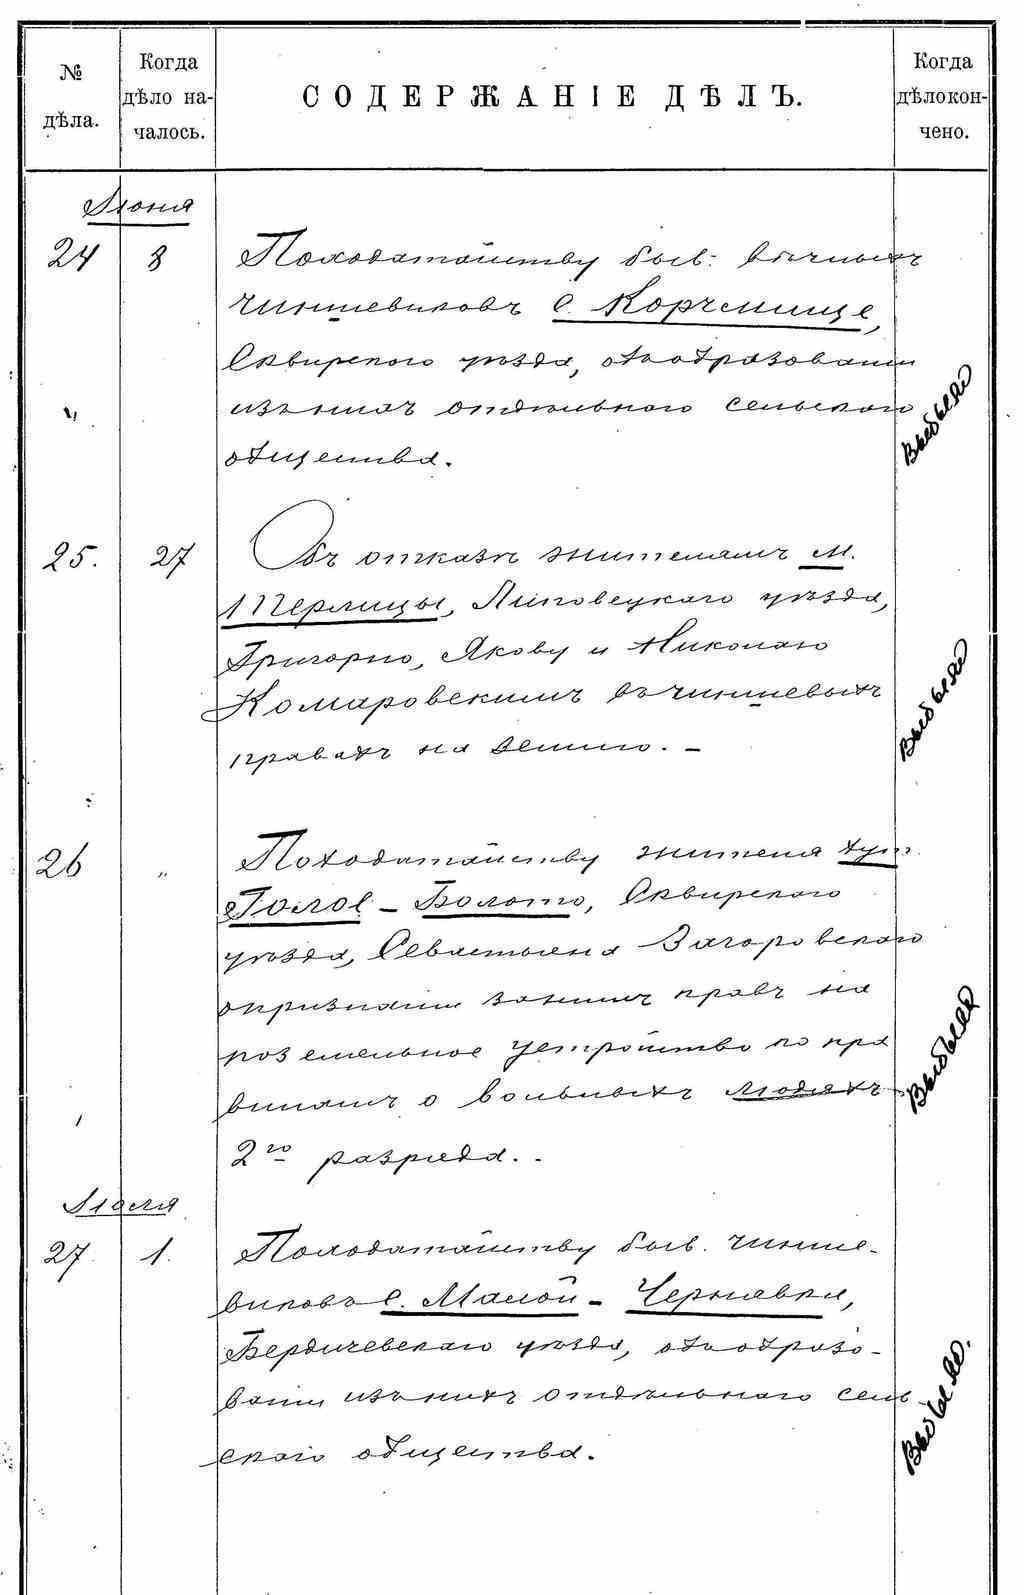 № дѣла.
Когда дѣло на-
чалось.
СОДЕРЖАНІЕ ДѢЛЪ.
Когда дѣло кон-
чено.
Іюня
24 8 По ходатайству быв. вѣчныхъ
чиншевиковъ с. Корчмище,
Сквирскаго уѣзда, объ образованіи
изъ нихъ отдѣльнаго сельскаго
общества.
Выбыло
25. 27 Объ отказѣ жителямъ м.
Липовецкаго уѣзда,
Григорію, Якову и Николаю
Комаровскимъ въ чиншевыхъ
правахъ на землю. –
Выбыло
26 „ По ходатайству жителя хут.
Голое – Болото, Сквирскаго
уѣзда, Севастьяна Загоровскаго
о признаніи за нимъ правъ на
поземельное устройство по пра
виламъ о вольныхъ людяхъ
2го разряда. -
Выбыло
Іюля
27. 1. По ходатайству быв. чинше-
виковъ с. Малой – Чернявки,
Бердичевскаго уѣзда, объ образо-
ваніи изъ нихъ отдѣльнаго сель
скаго общества.
Выбыло.